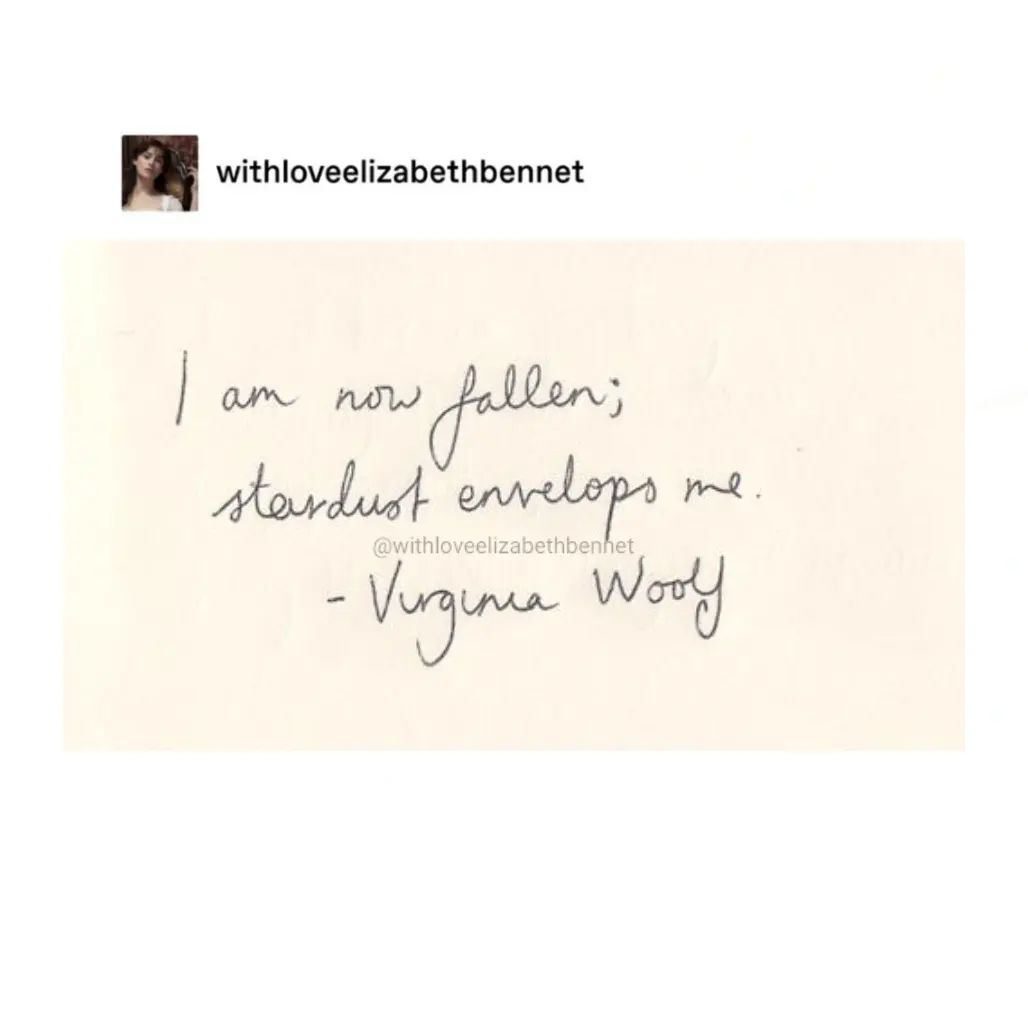 withloveelizabethbennet
I am now fallen;
stardust envelops me.
@withloveelizabethbennet
- Virginia Woolf